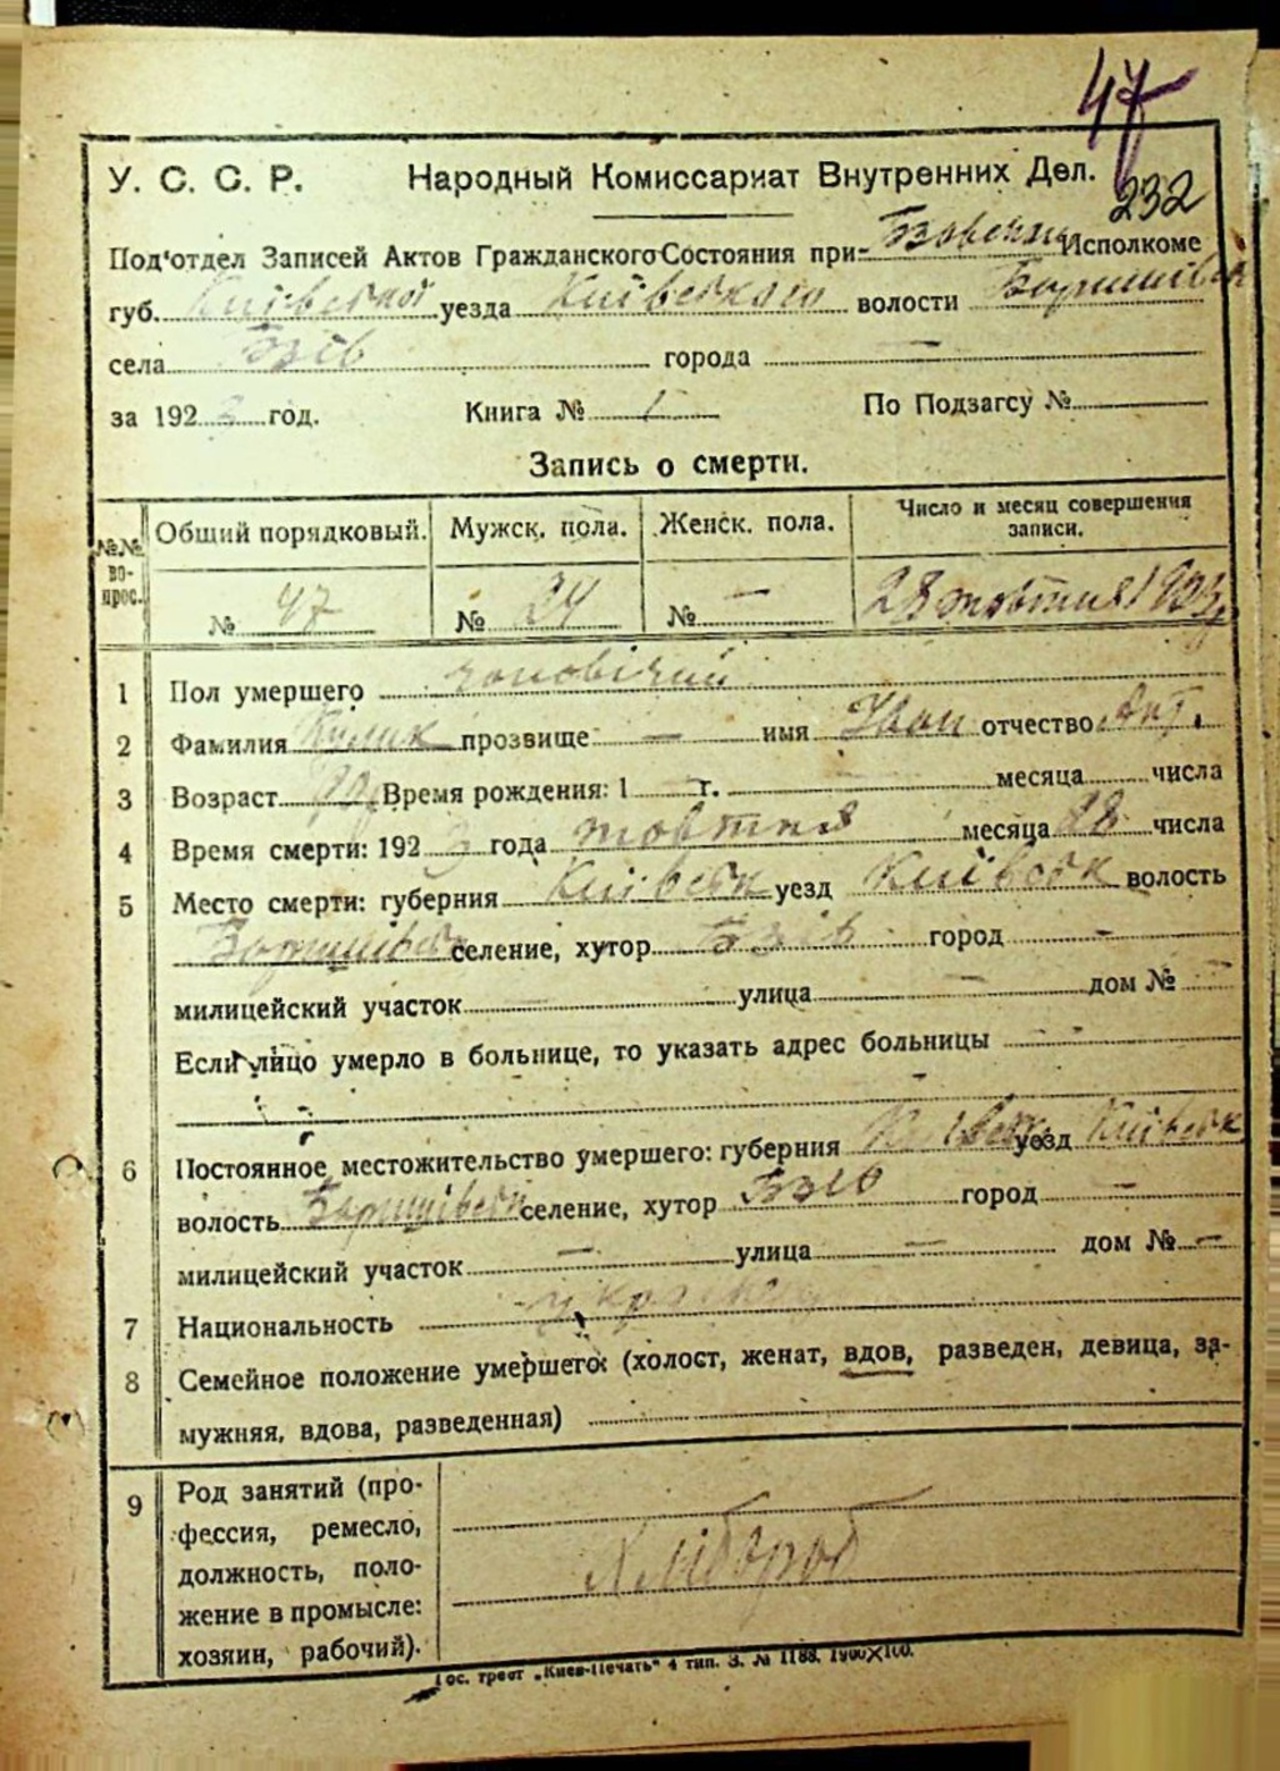 47
У. С. С. Р. Народный Комиссариат Внутренних Дел.
232
Под'отдел Записей Актов Гражданского Состояния при Исполкоме
губ. Київської уезда Київського волости
села Бзів города —
за 1923 год. Книга № 1 По Подзагсу №
Запись о смерти.
№№ вопрос. Общий порядковый. Мужск. пола. Женск. пола. Число и месяц совершения записи.
№ 47 № 24 № — 28 жовтня 1923
1 Пол умершего чоловічий
2 Фамилия Кулик прозвище — имя Иван отчество
3 Возраст Время рождения: 1 — г. — месяца числа
4 Время смерти: 1923 года жовтня месяца 28 числа
5 Место смерти: губерния Київськ уезд Київськ волость
селение, хутор Бзів город —
милицейский участок — улица — дом № —
Если лицо умерло в больнице, то указать адрес больницы —
6 Постоянное местожительство умершего: губерния Київськ уезд Київськ
волость селение, хутор Бзів город —
милицейский участок — улица — дом № —
7 Национальность
8 Семейное положение умершего: (холост, женат, вдов, разведен, девица, за-
мужняя, вдова, разведенная)
9 Род занятий (про-
фессия, ремесло,
должность, поло-
жение в промысле:
хозяин, рабочий).
Хлібороб
Гос. трест „Киев-Печать" 4 тип. З. № 1188. 1900×100.